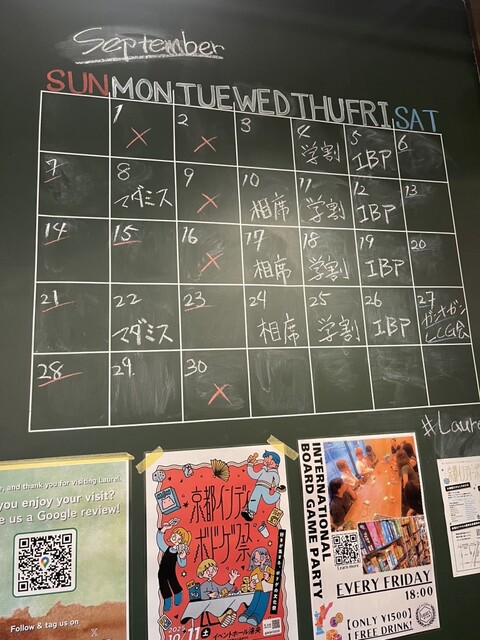 September
SUN MON TUE WED THU FRI SAT
1 2 3 4 5 6
× × 学割 IBP
7 8 9 10 11 12 13
マダミス × 相席 学割 IBP
14 15 16 17 18 19 20
× 相席 学割 IBP
21 22 23 24 25 26 27
マダミス 相席 学割 IBP ガンオガン
LCG会
28 29. 30
×
#Laure
and thank you for visiting Laure
you enjoy your visit?
us a Google review!
Follow & tag us on
京都インディー
ボドゲ祭
10.11 土 イベントホール
INTERNATIONAL
BOARD GAME PARTY
Learn more
EVERY FRIDAY
18:00
【ONLY ¥1500】
1 FREE DRINK!